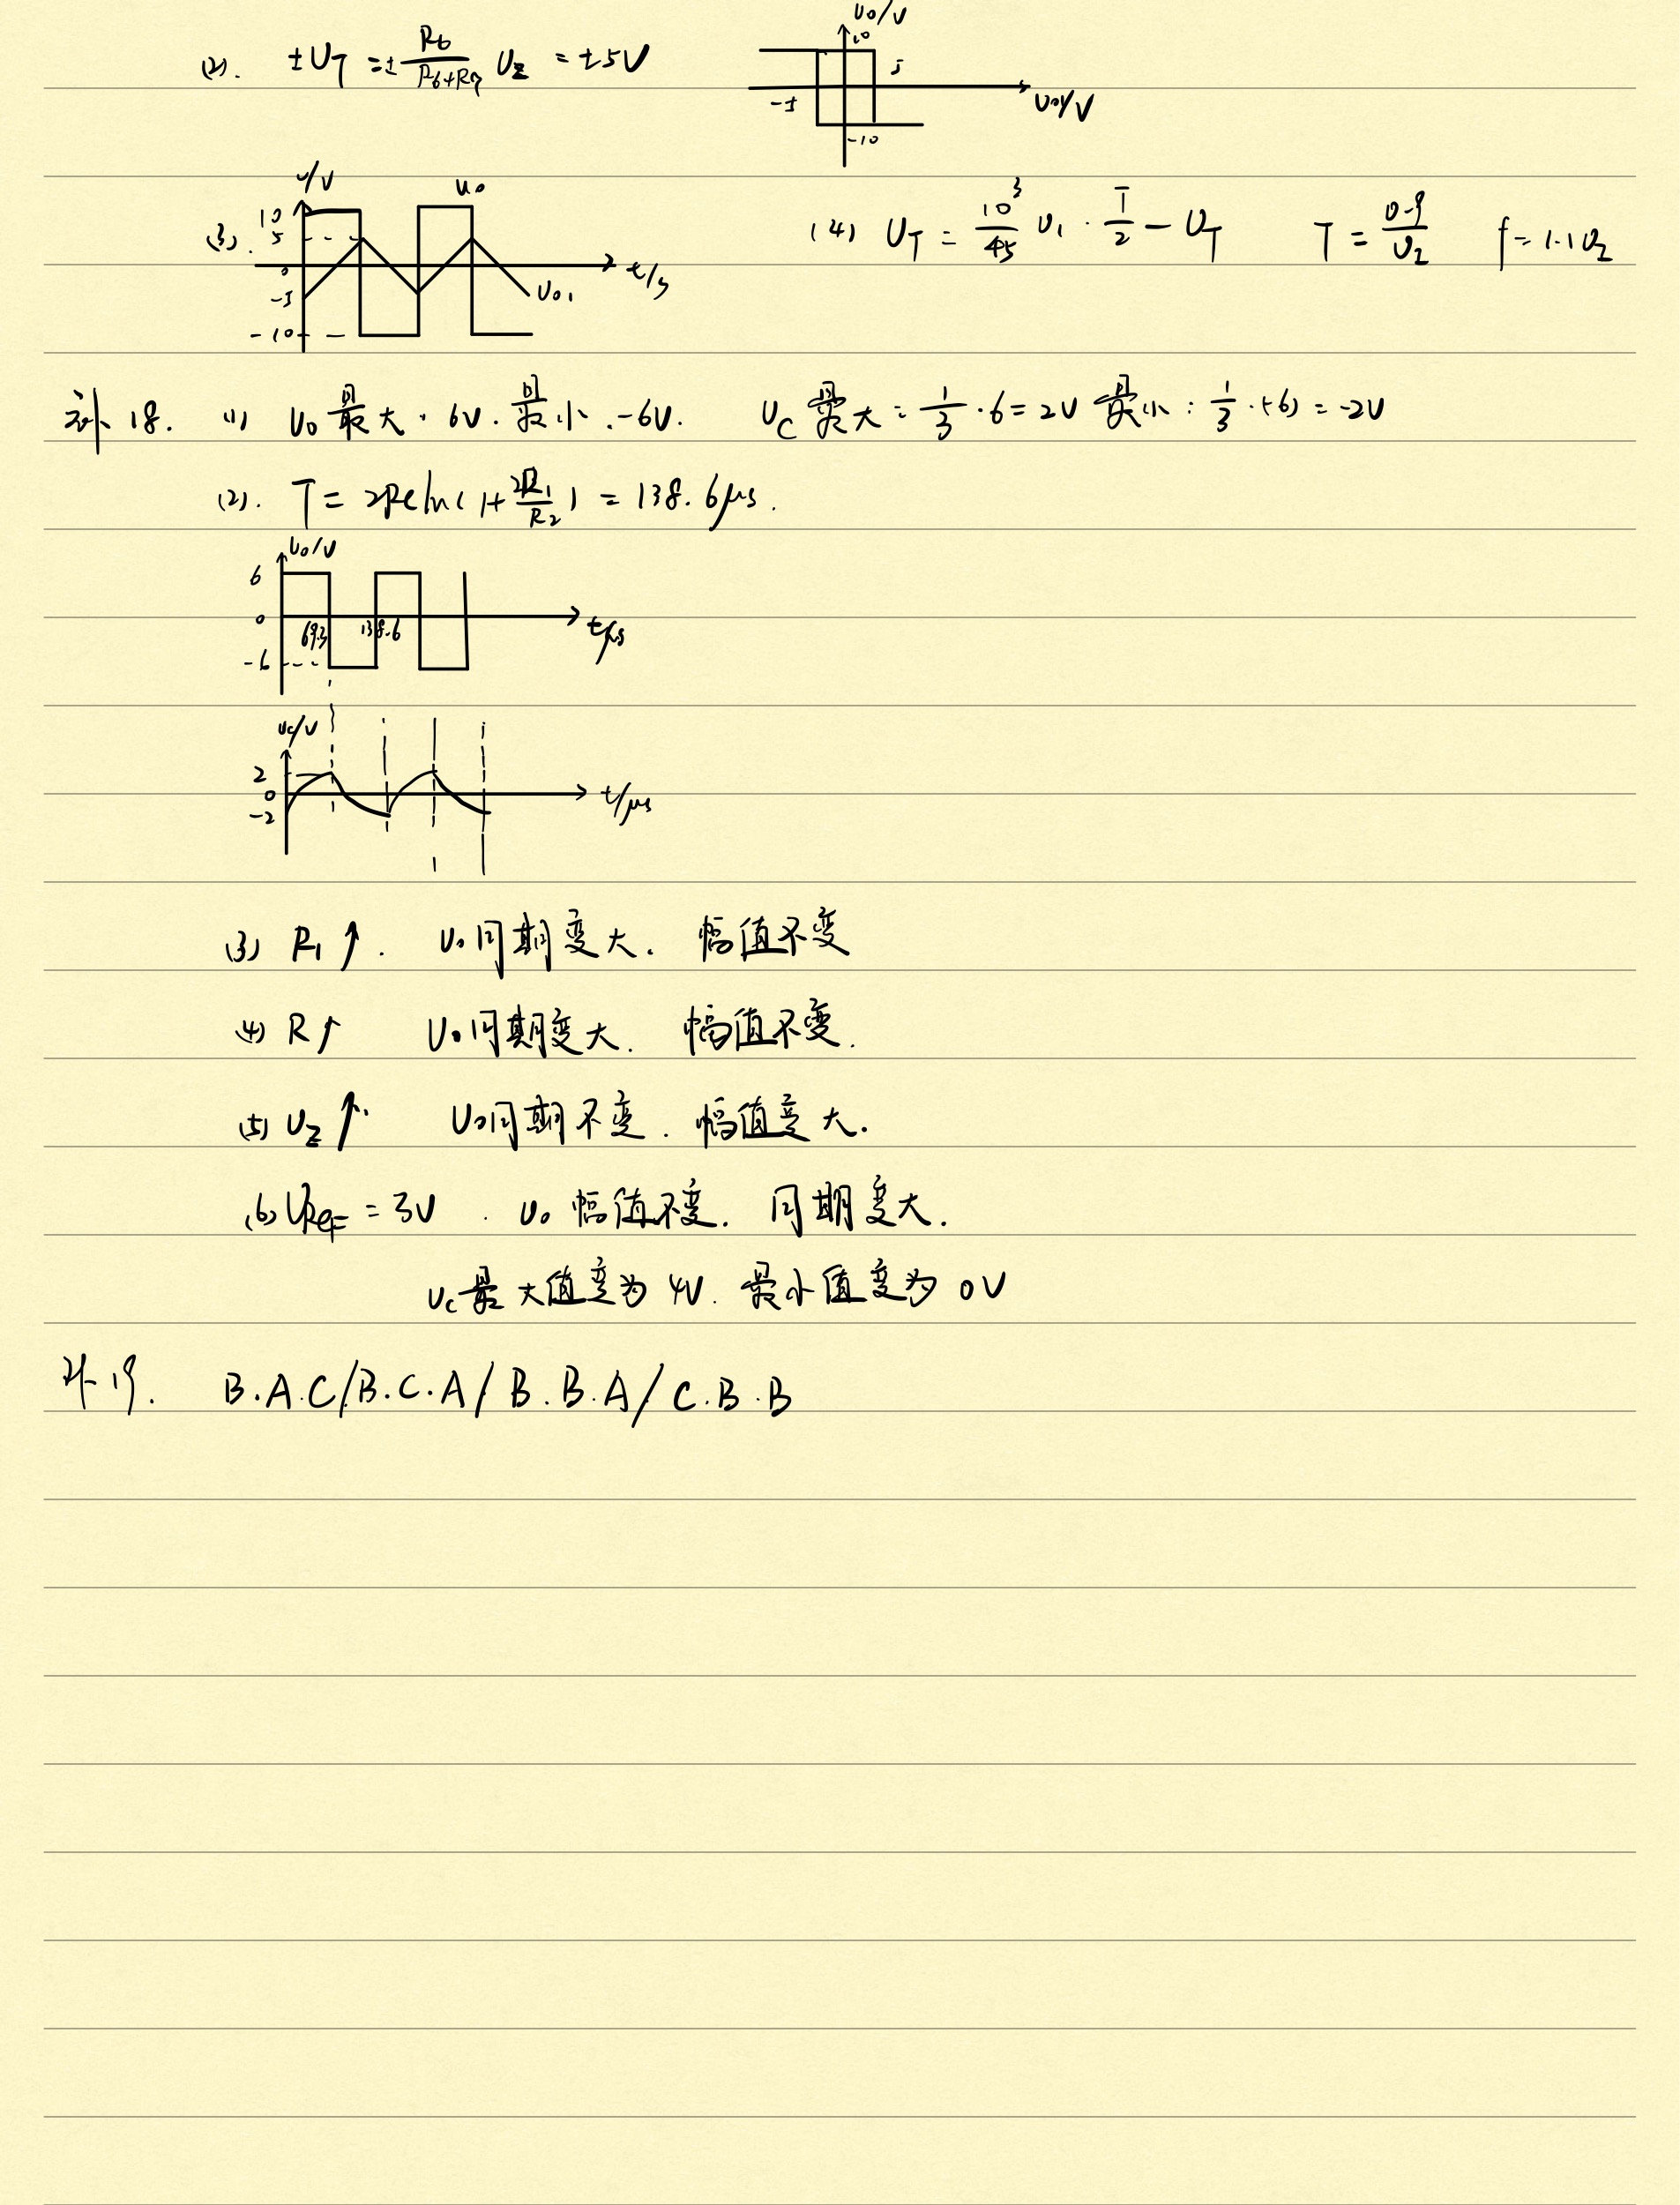 (2). ±U_T = ± R6/(R6+R7) Uz = ±5V
U0/V
10
5
-5
U01/V
-10
u/V
10
5
0
-5
-10
U0
U01
t/s
(3).
(4) U_T = 10³/45 U1 · T/2 - U_T T = 0.9/U2 f = 1.1U2
补18. (1) U0最大:6V. 最小:-6V. Uc最大:1/3·6=2V 最小:1/3·(-6)=-2V
(2). T = 2RC ln(1+2R1/R2) = 138.6μs.
U0/V
6
0
69.3 138.6
-6
t/μs
uc/V
2
0
-2
t/μs
(3) R1↑. U0周期变大. 幅值不变
(4) R↑ U0周期变大. 幅值不变.
(5) Uz↑. U0周期不变. 幅值变大.
(6) UREF=3V. U0幅值不变. 周期变大.
uc最大值变为4V. 最小值变为0V
补19. B.A.C/B.C.A/B.B.A/C.B.B